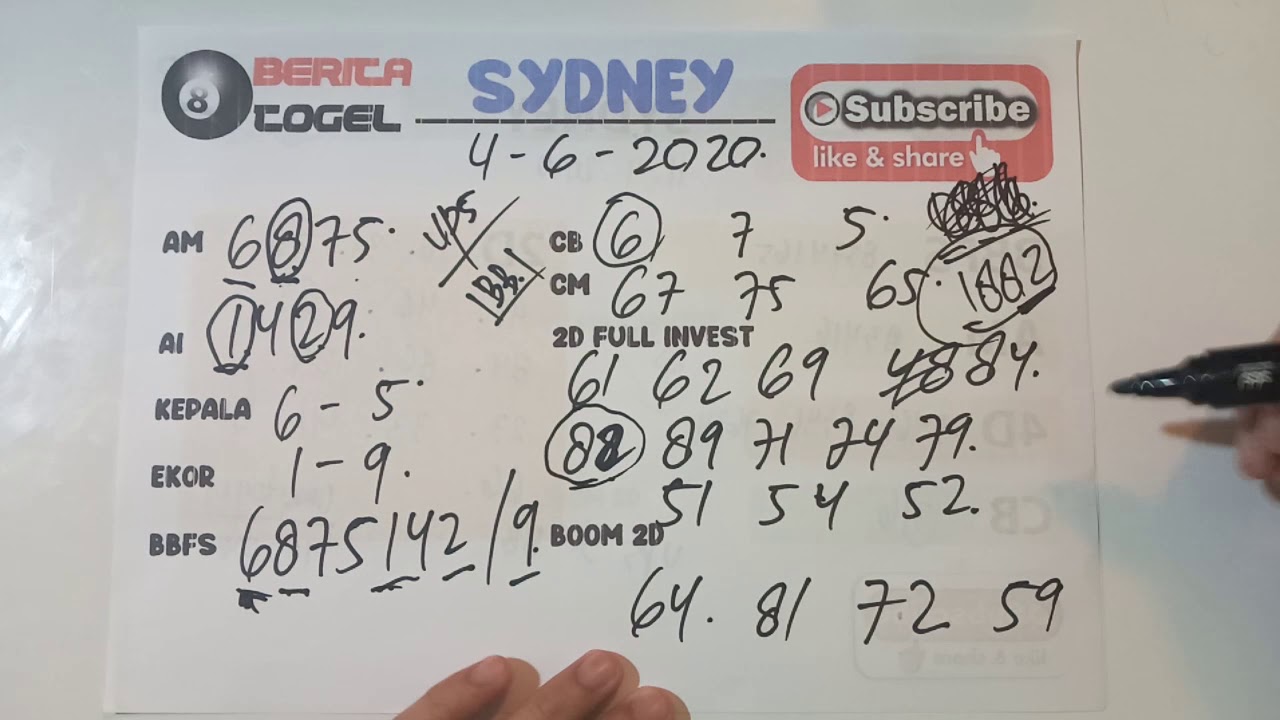 8 BERITA TOGEL
SYDNEY
4-6-2020.
Subscribe
like & share
AM 6875.
AI 1429.
KEPALA 6 - 5.
EKOR 1 - 9.
BBFS 6875142/9.
CB 6 7 5.
CM 67 75 65.
1882
2D FULL INVEST
61 62 69 48 84.
82 89 71 74 79.
51 54 52.
BOOM 2D
64. 81 72 59